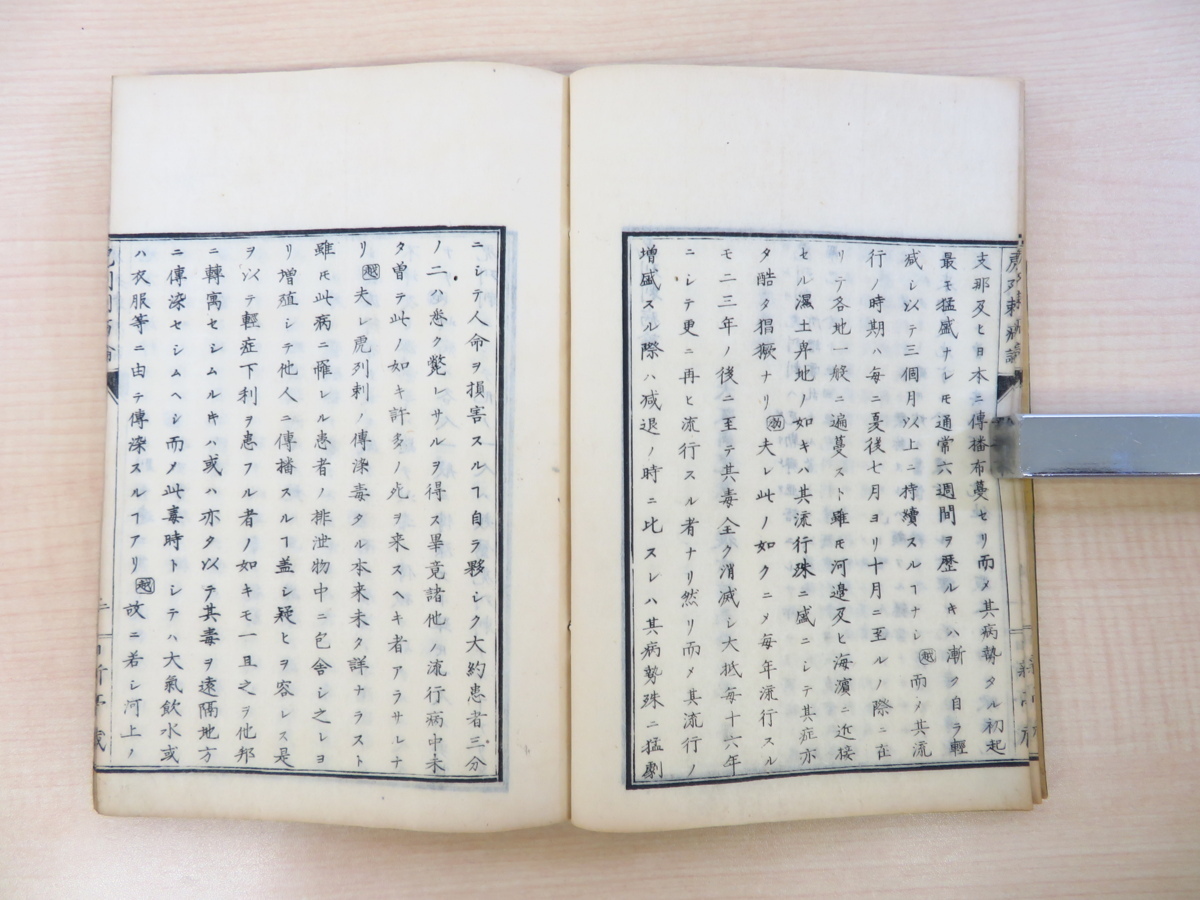 支那及ヒ日本ニ傳播布蔓セリ而メ其病勢タル初起
最モ猛盛ナレㇳモ通常六週間ヲ歴ルキハ漸ク自ラ輕
減シ以テ三個月以上ニ持續スルヿナシ越而メ其流
行ノ時期ハ每ニ夏後七月ヨリ十月ニ至ルノ際ニ在
リテ各地一般ニ遍蔓スト雖モ河邊及ヒ海濱ニ近接
セル濕土卑地ノ如キハ其流行殊ニ盛ニシテ其症亦
タ酷タ猖獗ナリ 夫レ此ノ如クニメ每年流行スル
モ二三年ノ後ニ至テ其毒全ク消滅シ大抵每十六年
ニシテ更ニ再ヒ流行スル者ナリ然リ而メ其流行ノ
增盛スル際ハ减退ノ時ニ比スレハ其病勢殊ニ猛劇
ニシテ人命ヲ損害スルヿ自ラ夥シク大約患者三分
ノ二ハ悉ク斃レサルヲ得ス畢竟諸他ノ流行病中未
タ曽テ此ノ如キ許多ノ死ヲ来スヘキ者アラサレナ
リ越夫レ虎列剌ノ傳染毒タル本来未タ詳ナラスト
雖モ此病ニ罹レル患者ノ排泄物中ニ包舍シ之レヨ
リ增殖シテ他人ニ傳播スルヿ盖シ疑ヒヲ容レス是
ヲ以テ輕症下利ヲ患フル者ノ如キモ一旦之ヲ他邦
ニ轉寓セシムルキハ或ハ亦タ以テ其毒ヲ遠隔地方
ニ傳染セシムヘシ而メ此毒時トシテハ大氣飲水或
ハ衣服等ニ由テ傳染スルヿアリ越故ニ若シ河上ノ